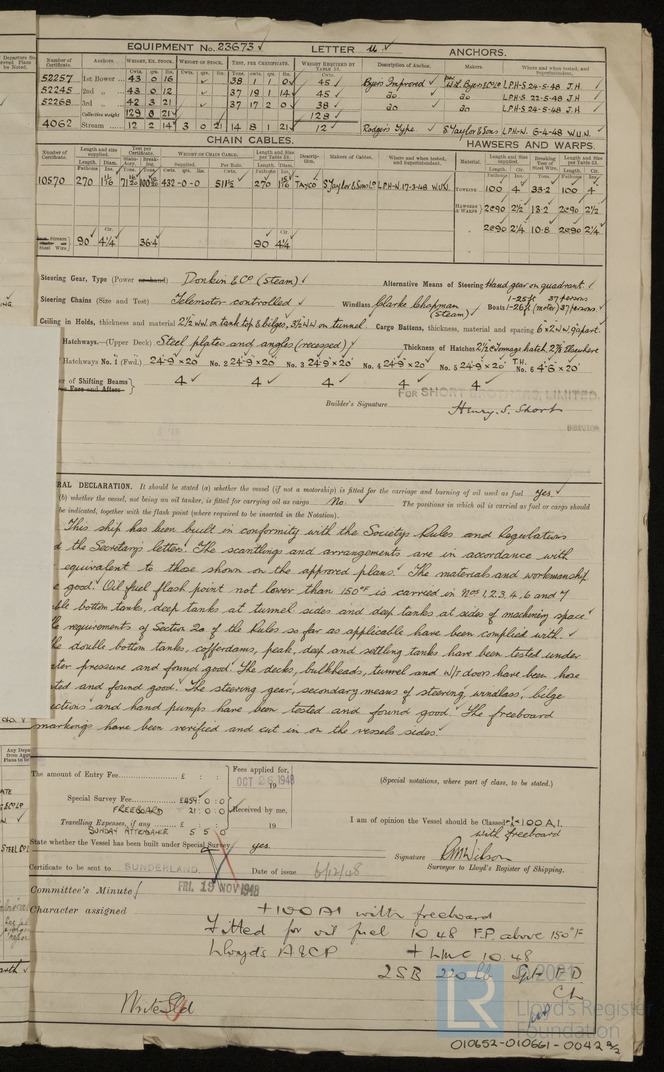 EQUIPMENT No. 23673 LETTER u ANCHORS.
Number of Certificate. Anchors. WEIGHT, EX. STOCK. WEIGHT OF STOCK. TEST, PER CERTIFICATE. WEIGHT REQUIRED BY TABLE 53. Description of Anchor. Makers. Where and when tested, and Superintendent.
52257 1st Bower 43 0 16 38 1 1 0 45 Byers Improved W.L. Byers & Co Ld LPH-S 24-5-48 J.H
52245 2nd 43 0 12 37 19 1 14 45 do do LPH-S 22-5-48 J.H
52268 3rd 42 3 21 37 17 2 0 38 do do LPH-S 24-5-48 J.H
Collective weight 129 0 21 128
4062 Stream 12 2 14 3 0 21 14 8 1 21 12 Rodgers Type S Taylor & Sons LPH-N. 6-4-48 W.U.N.
CHAIN CABLES. HAWSERS AND WARPS.
Number of Certificate. Length and size supplied. Test per Certificate. WEIGHT OF CHAIN CABLE. Length and size per Table 53. Description. Makers of Cables. Where and when tested, and Superintendent. Material. Length and size supplied. Breaking Test of Steel Wire. Length and size per Table 53.
10570 270 432-0-0 511½ 270 TAYCO S Taylor & Sons Ld LPH-N. 17-3-48 W.U.N. TOWING 100 4 33.2 100 4
HAWSERS & WARPS 2@90 2½ 13.2 2@90 2½
2@90 2¼ 10.8 2@90 2¼
Stream Steel Wire 90 4¼ 36.4 90 4¼
Steering Gear, Type (Power or hand) Donkin & Co (Steam) Alternative Means of Steering Hand gear on quadrant.
Steering Chains (Size and Test) Telemotor controlled Windlass Clarke Chapman (Steam) Boats 1-25ft 37 persons 1-26ft (motor) 37 persons
Ceiling in Holds, thickness and material 2½ W.W. on tank top & bilges, 3½ W.W. on tunnel Cargo Battens, thickness, material and spacing 6 x 2 W.W. 9" apart
Hatchways.—(Upper Deck) Steel plates and angles (recessed) Thickness of Hatches 2½ Tonnage hatch, 2⅜ Elsewhere
Hatchways No. 1 (Fwd.) 24'9" x 20' No. 2 24'9" x 20' No. 3 24'9" x 20' No. 4 24'9" x 20' No. 5 24'9" x 20' T.H. No. 6 4'6" x 20'
of Shifting Beams 4 4 4 4 4
or Fore and Afters
FOR SHORT BROTHERS, LIMITED.
Builder's Signature Henry S. Short
RAL DECLARATION. It should be stated (a) whether the vessel (if not a motorship) is fitted for the carriage and burning of oil used as fuel yes.
(b) whether the vessel, not being an oil tanker, is fitted for carrying oil as cargo No. The positions in which oil is carried as fuel or cargo should
be indicated, together with the flash point (where required to be inserted in the Notation).
This ship has been built in conformity with the Society's Rules and Regulations
the Secretary's letter. The scantlings and arrangements are in accordance with
equivalent to those shown on the approved plans. The materials and workmanship
good. Oil fuel flash point not lower than 150°F is carried in Nos 1, 2, 3, 4, 6 and 7
ble bottom tanks, deep tanks at tunnel sides and deep tanks at sides of machinery space
requirements of Section 20 of the Rules so far as applicable have been complied with.
he double bottom tanks, cofferdams, peak, deep and settling tanks have been tested under
ter pressure and found good. The decks, bulkheads, tunnel and W/T doors have been hose
ted and found good. The steering gear, secondary means of steering, windlass, bilge
ctions and hand pumps have been tested and found good. The freeboard
markings have been verified and cut in on the vessels sides.
The amount of Entry Fee £ : : Fees applied for, OCT 26 1948
(Special notations, where part of class, to be stated.)
Special Survey Fee £454 : 0 : 0
FREEBOARD 21 : 0 : 0 Received by me,
Travelling Expenses, if any £ : : 19
SUNDAY ATTENDANCE 5 5 0
I am of opinion the Vessel should be Classed +100A1.
with freeboard
State whether the Vessel has been built under Special Survey yes.
Signature R M Wilson
Surveyor to Lloyd's Register of Shipping.
Certificate to be sent to SUNDERLAND. Date of issue 6/12/48
Committee's Minute FRI. 19 NOV 1948
Character assigned +100A1 with freeboard
Fitted for oil fuel 10.48 F.P. above 150°F
Lloyd's A&CP +LMC 10.48
2SB 220 lb Spt FD
CL
Write Sld
© 2021
LR Lloyd's Register Foundation
010652-010661-0042 2/2